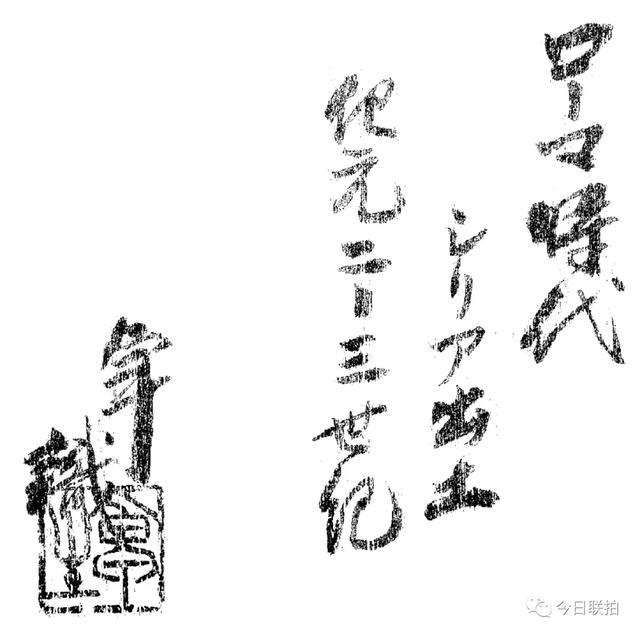 ローマ時代
シリア出土
紀元二ー三世紀
今日联拍